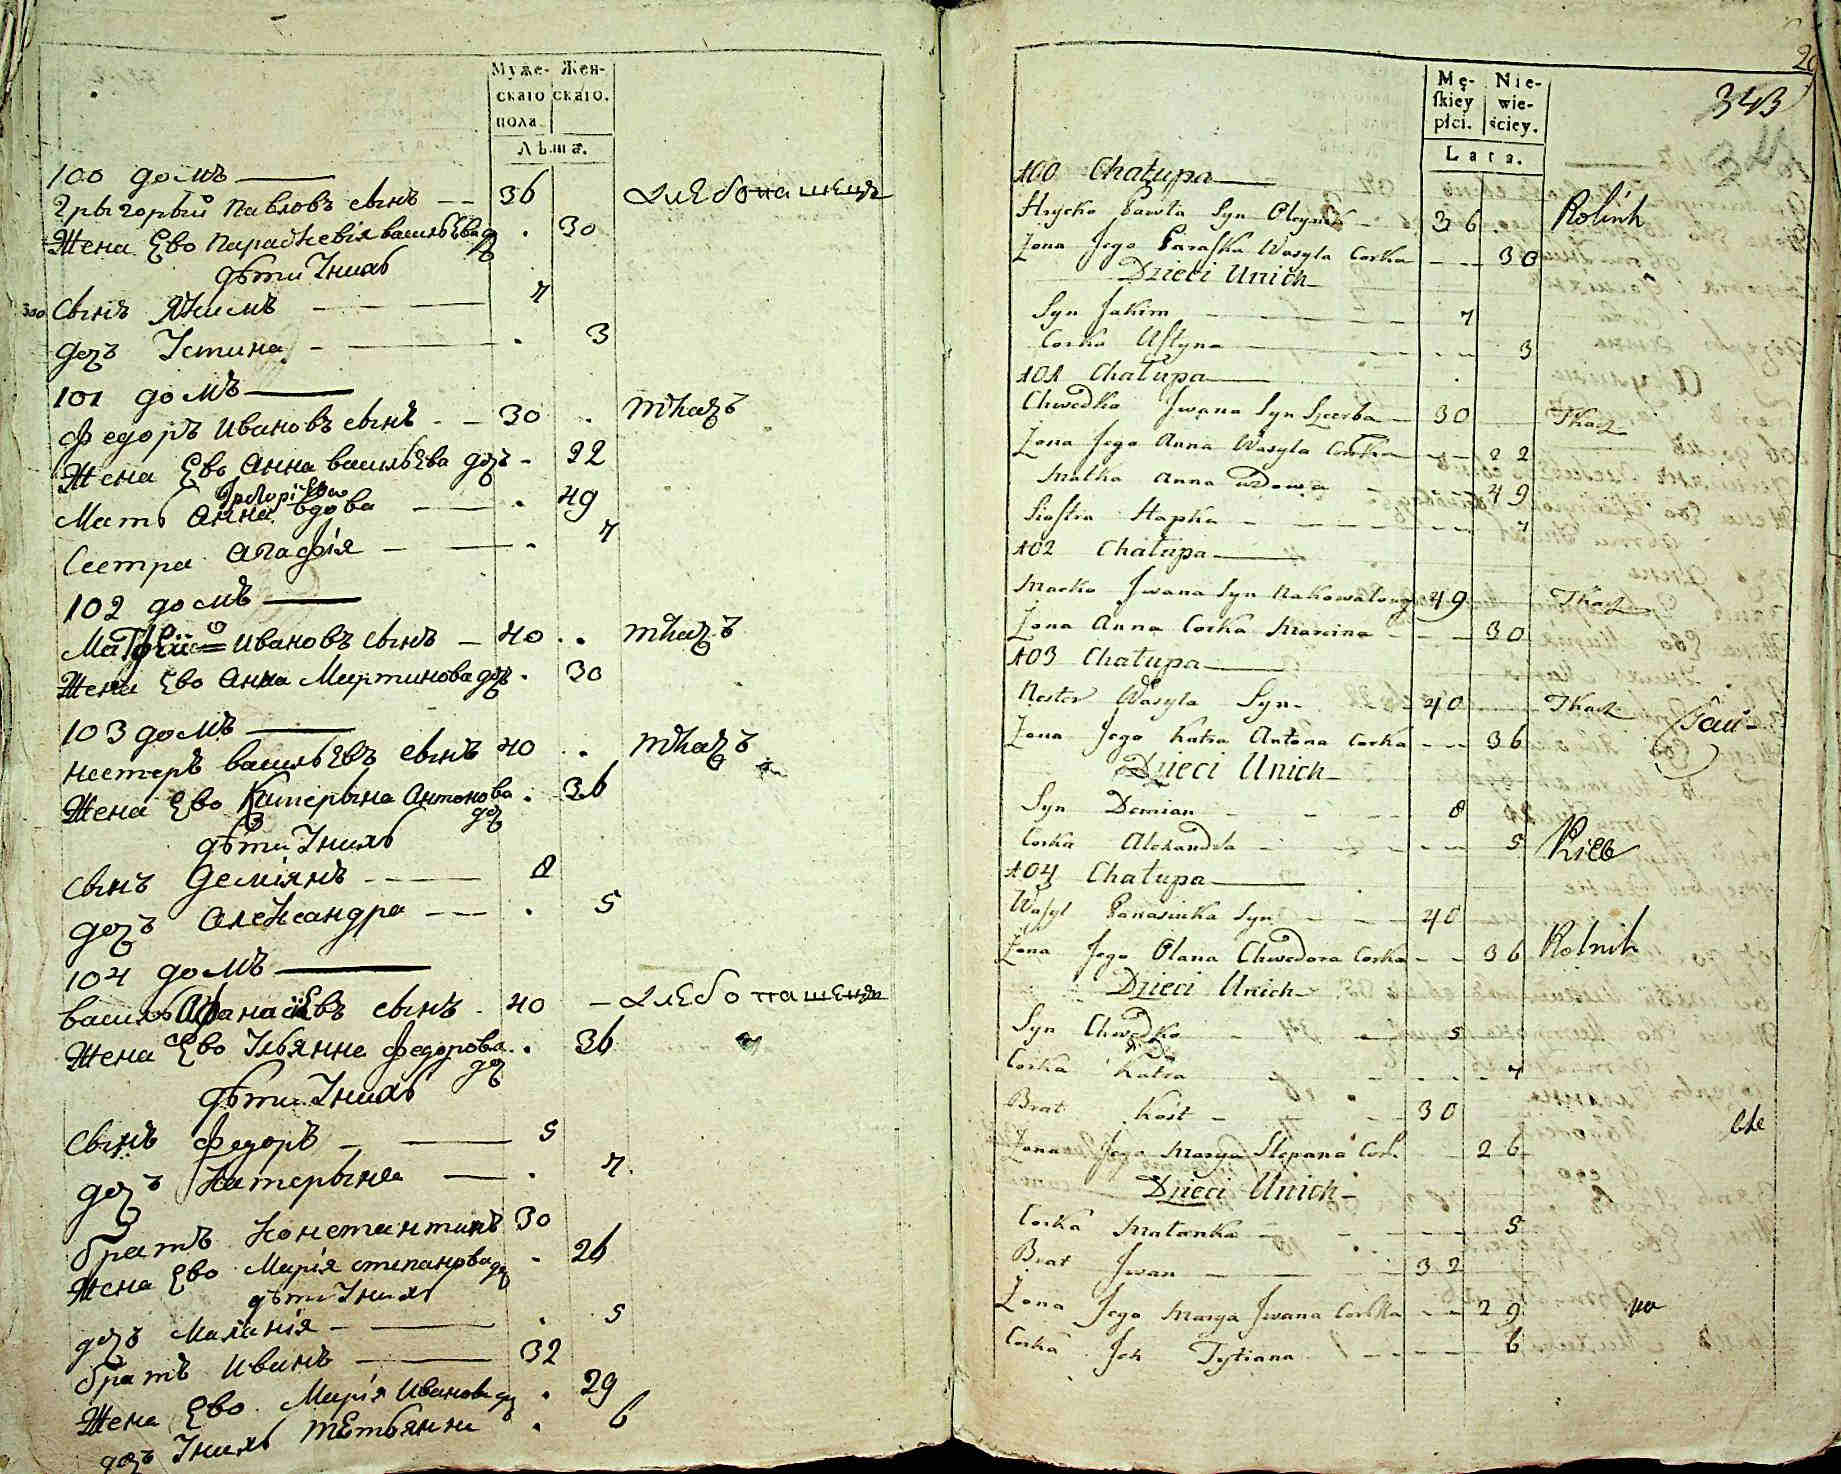 Муже- Жен-
скаго скаго.
пола
Лѣта.
100 домъ
Грыгорый Павловъ сынъ 36 хлебопашецъ
Жена Ево Параскевія васильева доч 30
дѣти Унихъ
300 сынъ Якимъ 7
дочъ Устина 3
101 домъ
Федоръ Ивановъ сынъ 30 ткачъ
Жена Ево Анна васильева дочъ 22
Мать Анна вдова 49
Сестра Агафія 7
102 домъ
Матфей Ивановъ сынъ 40 ткачъ
Жена Ево Анна Мартинова дочъ 30
103 домъ
Нестеръ васильевъ сынъ 40 ткачъ
Жена Ево Катерына Антонова доч 36
дѣти Унихъ
сынъ Деміянъ 8
дочъ Александра 5
104 домъ
василь Афанасіевъ сынъ 40 хлебопашецъ
Жена Ево Ульянна Федорова доч 36
дѣти Унихъ
сынъ Федоръ 5
дочъ Катерына 7
братъ Константинъ 30
Жена Ево Марія степанова доч 26
дѣти Унихъ
дочъ Маланія 5
братъ Иванъ 32
Жена Ево Марія Иванова доч 29
дочъ Унихъ тетьянна 6
343
Mę- Nie-
skiey wie-
płci. ściey.
Lata.
100 Chałupa
Hrycko Pawła Syn 36 Rolnik
Zona Jego Paraska Wasyla Corka 30
Dzieci Unich
Syn Jakim 7
Corka Ustyna 3
101 Chałupa
Chwedko Jwana Syn Szczerba 30 Tkacz
Zona Jego Anna Wasyla Corka 22
Matka Anna Wdowa 49
Siostra Hapka 7
102 Chałupa
Macko Jwana Syn 49 Tkacz
Zona Anna Corka Marcina 30
103 Chałupa
Nester Wasyla Syn 40 Tkacz
Zona Jego Katra Antona Corka 36
Dzieci Unich
Syn Demian 8
Corka Alexandra 5
104 Chałupa
Wasyl Panasiuka Syn 40
Zona Jego Olana Chwedora Corka 36 Rolnik
Dzieci Unich
Syn Chwedko 5
Corka Katra 7
Brat Kost 30
Zona Jego Marya Stepana Cor. 26
Dzieci Unich
Corka Małanka 5
Brat Jwan 32
Zona Jego Marya Jwana Corka 29
Corka Jch Tytiana 6